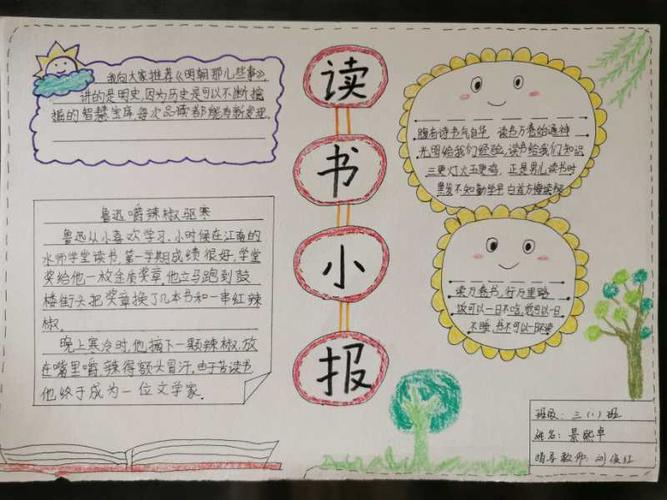 我向大家推荐《明朝那儿些事》，
讲的是明史，因为历史是可以不断挖
掘的智慧宝库，每次品读都能有新发现。
鲁迅嚼辣椒驱寒
鲁迅从小喜欢学习，小时候在江南的
水师学堂读书，第一学期成绩很好，学堂
奖给他一枚金质奖章，他立马跑到鼓
楼街头把奖章换了几本书和一串红辣
椒。
晚上寒冷时，他摘下一颗辣椒，放
在嘴里嚼，辣得额头冒汗，由于苦读书
他终于成为一位文学家。
读
书
小
报
腹有诗书气自华 读书万卷始通神
光阴给我们经验，读书给我们知识
三更灯火五更鸡，正是男儿读书时
黑发不知勤学早 白首方悔读书迟
读万卷书，行万里路
饭可以一日不吃，觉可以一日
不睡，书不可以一日不读
班级：三（1）班
姓名：景
指导教师：刘